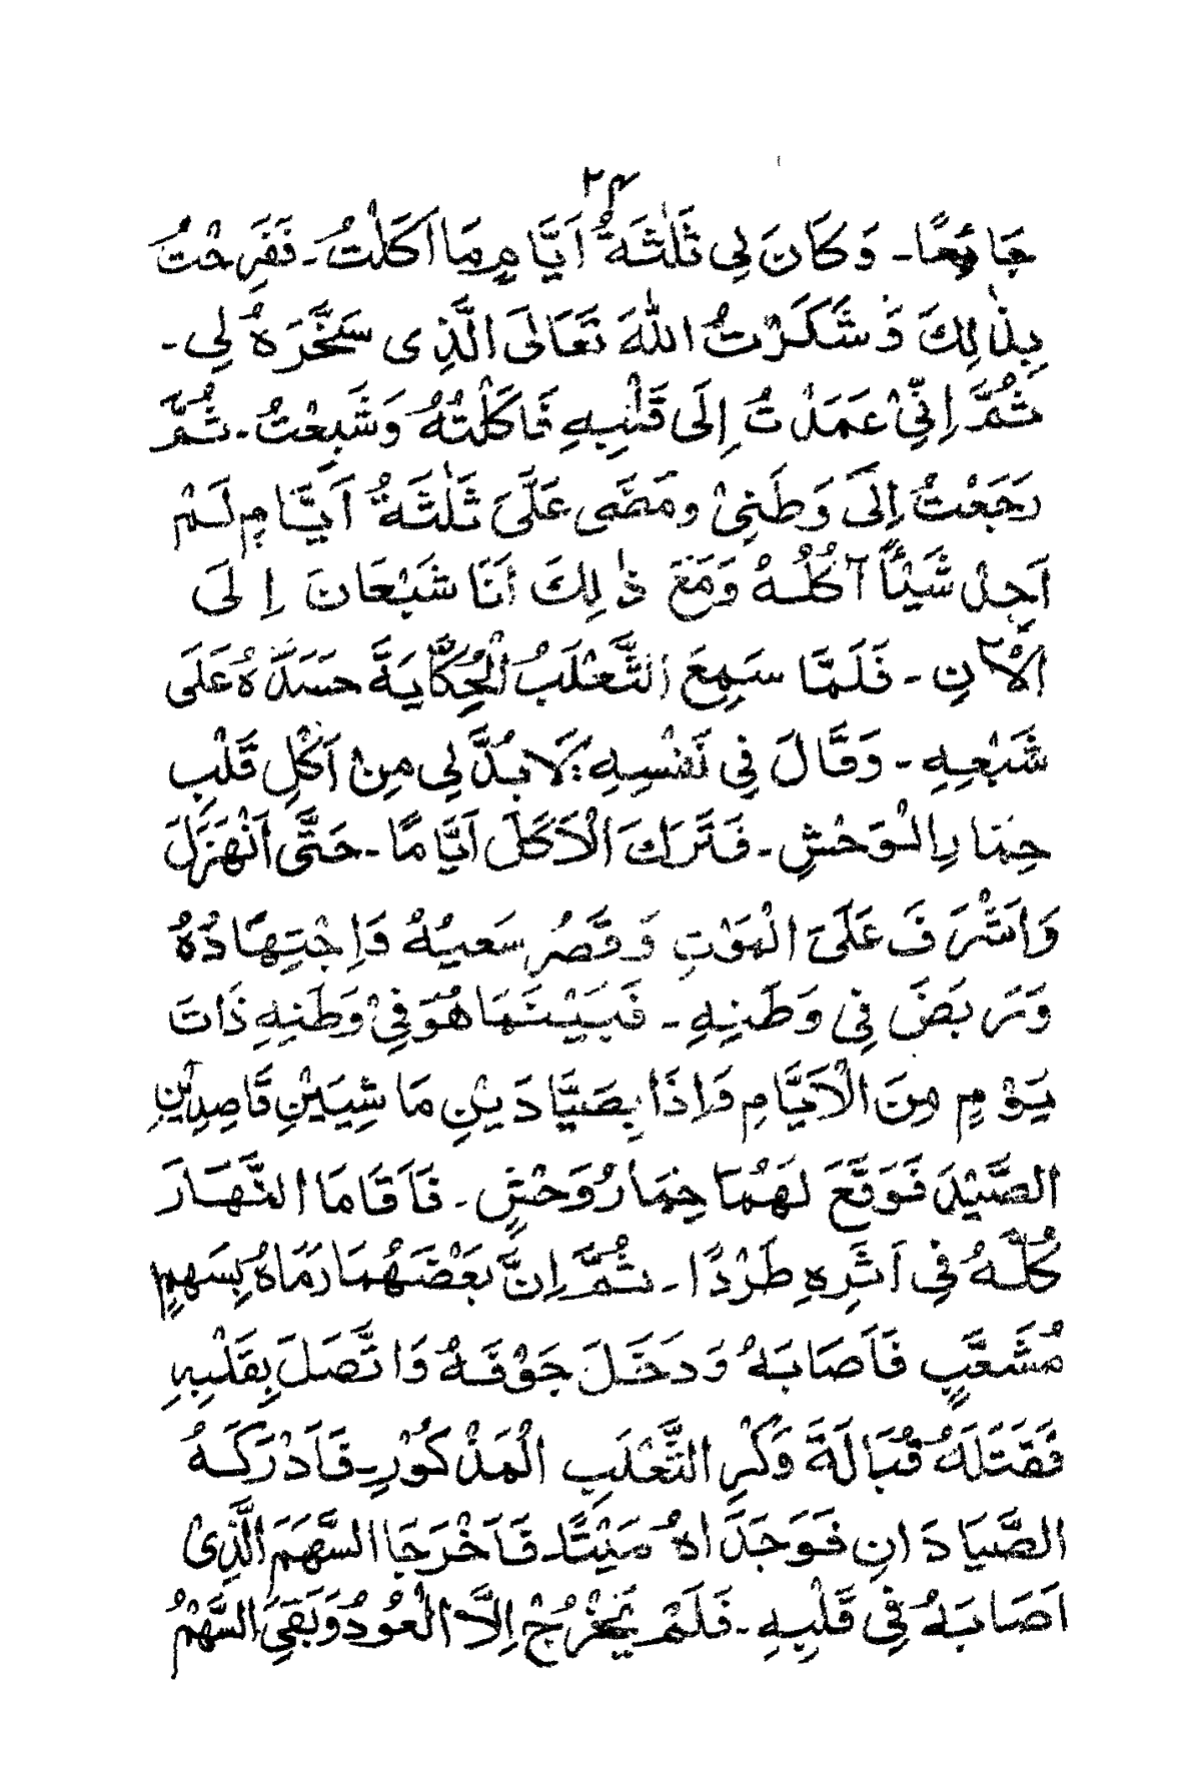 ۲۴
جَائِعًا۔ وَكَانَ لِي ثَلٰثَةُ اَيَّامٍ مَا اَكَلْتُ۔ فَفَرِحْتُ
بِذٰلِكَ وَشَكَرْتُ اللّٰهَ تَعَالٰى الَّذِى سَخَّرَهُ لِي۔
ثُمَّ اِنِّيْ عَمَدْتُ اِلَى قَلْبِهِ فَاَكَلْتُهُ وَشَبِعْتُ۔ ثُمَّ
رَجَعْتُ اِلَى وَطَنِيْ ومَضَى عَلَىَّ ثَلٰثَةُ اَيَّامٍ لَمْ
اَجِدْ شَيْئًا آكُلُهُ وَمَعَ ذٰلِكَ اَنَا شَبْعَانَ اِلَى
الْآنِ۔ فَلَمَّا سَمِعَ الثَّعْلَبُ الْحِكَايَةَ حَسَدَهُ عَلَى
شَبْعِهِ۔ وَقَالَ فِي نَفْسِهِ: لَا بُدَّ لِي مِنْ اَكْلِ قَلْبِ
حِمَارِ الْوَحْشِ۔ فَتَرَكَ الْاَكَلَ اَيَّامًا۔ حَتَّى اَنْهَزَلَ
وَاَشْرَفَ عَلَى الْمَوْتِ وَقَصُرَ سَعيُهُ وَاِجْتِهَادُهُ
وَرَبَضَ فِي وَطَنِهِ۔ فَبَيْنَمَا هُوَ فِيْ وَطَنِهِ ذَاتَ
يَوْمٍ مِنَ الْاَيَّامِ وَاِذَا بِصَيَّادَيْنِ مَاشِيَيْنِ قَاصِدِيْنِ
الصَّيْدَ فَوَقَعَ لَهُمَا حِمَارُ وَحْشٍ۔ فَاَقَامَا النَّهَارَ
كُلَّهُ فِي اَثَرِهِ طَرْدًا۔ ثُمَّ اِنَّ بَعْضَهُمَا رَمَاهُ بِسَهمٍ
مُشَعَّبٍ فَاَصَابَهُ وَدَخَلَ جَوْفَهُ وَاتَّصَلَ بِقَلْبِهِ
فَقَتَلَهُ قُبَالَةَ وَكْرِ الثَّعْلَبِ الْمَذْكُوْرِ۔ فَاَدْرَكَهُ
الصَّيَادَانِ فَوَجَدَاهُ مَيْتًا۔ فَاَخْرَجَا السَّهَمَ الَّذِىْ
اَصَابَهُ فِي قَلْبِهِ۔ فَلَمْ يَخْرُجْ اِلَّا الْعُودُ وَبَقِىَ السَّهْمُ